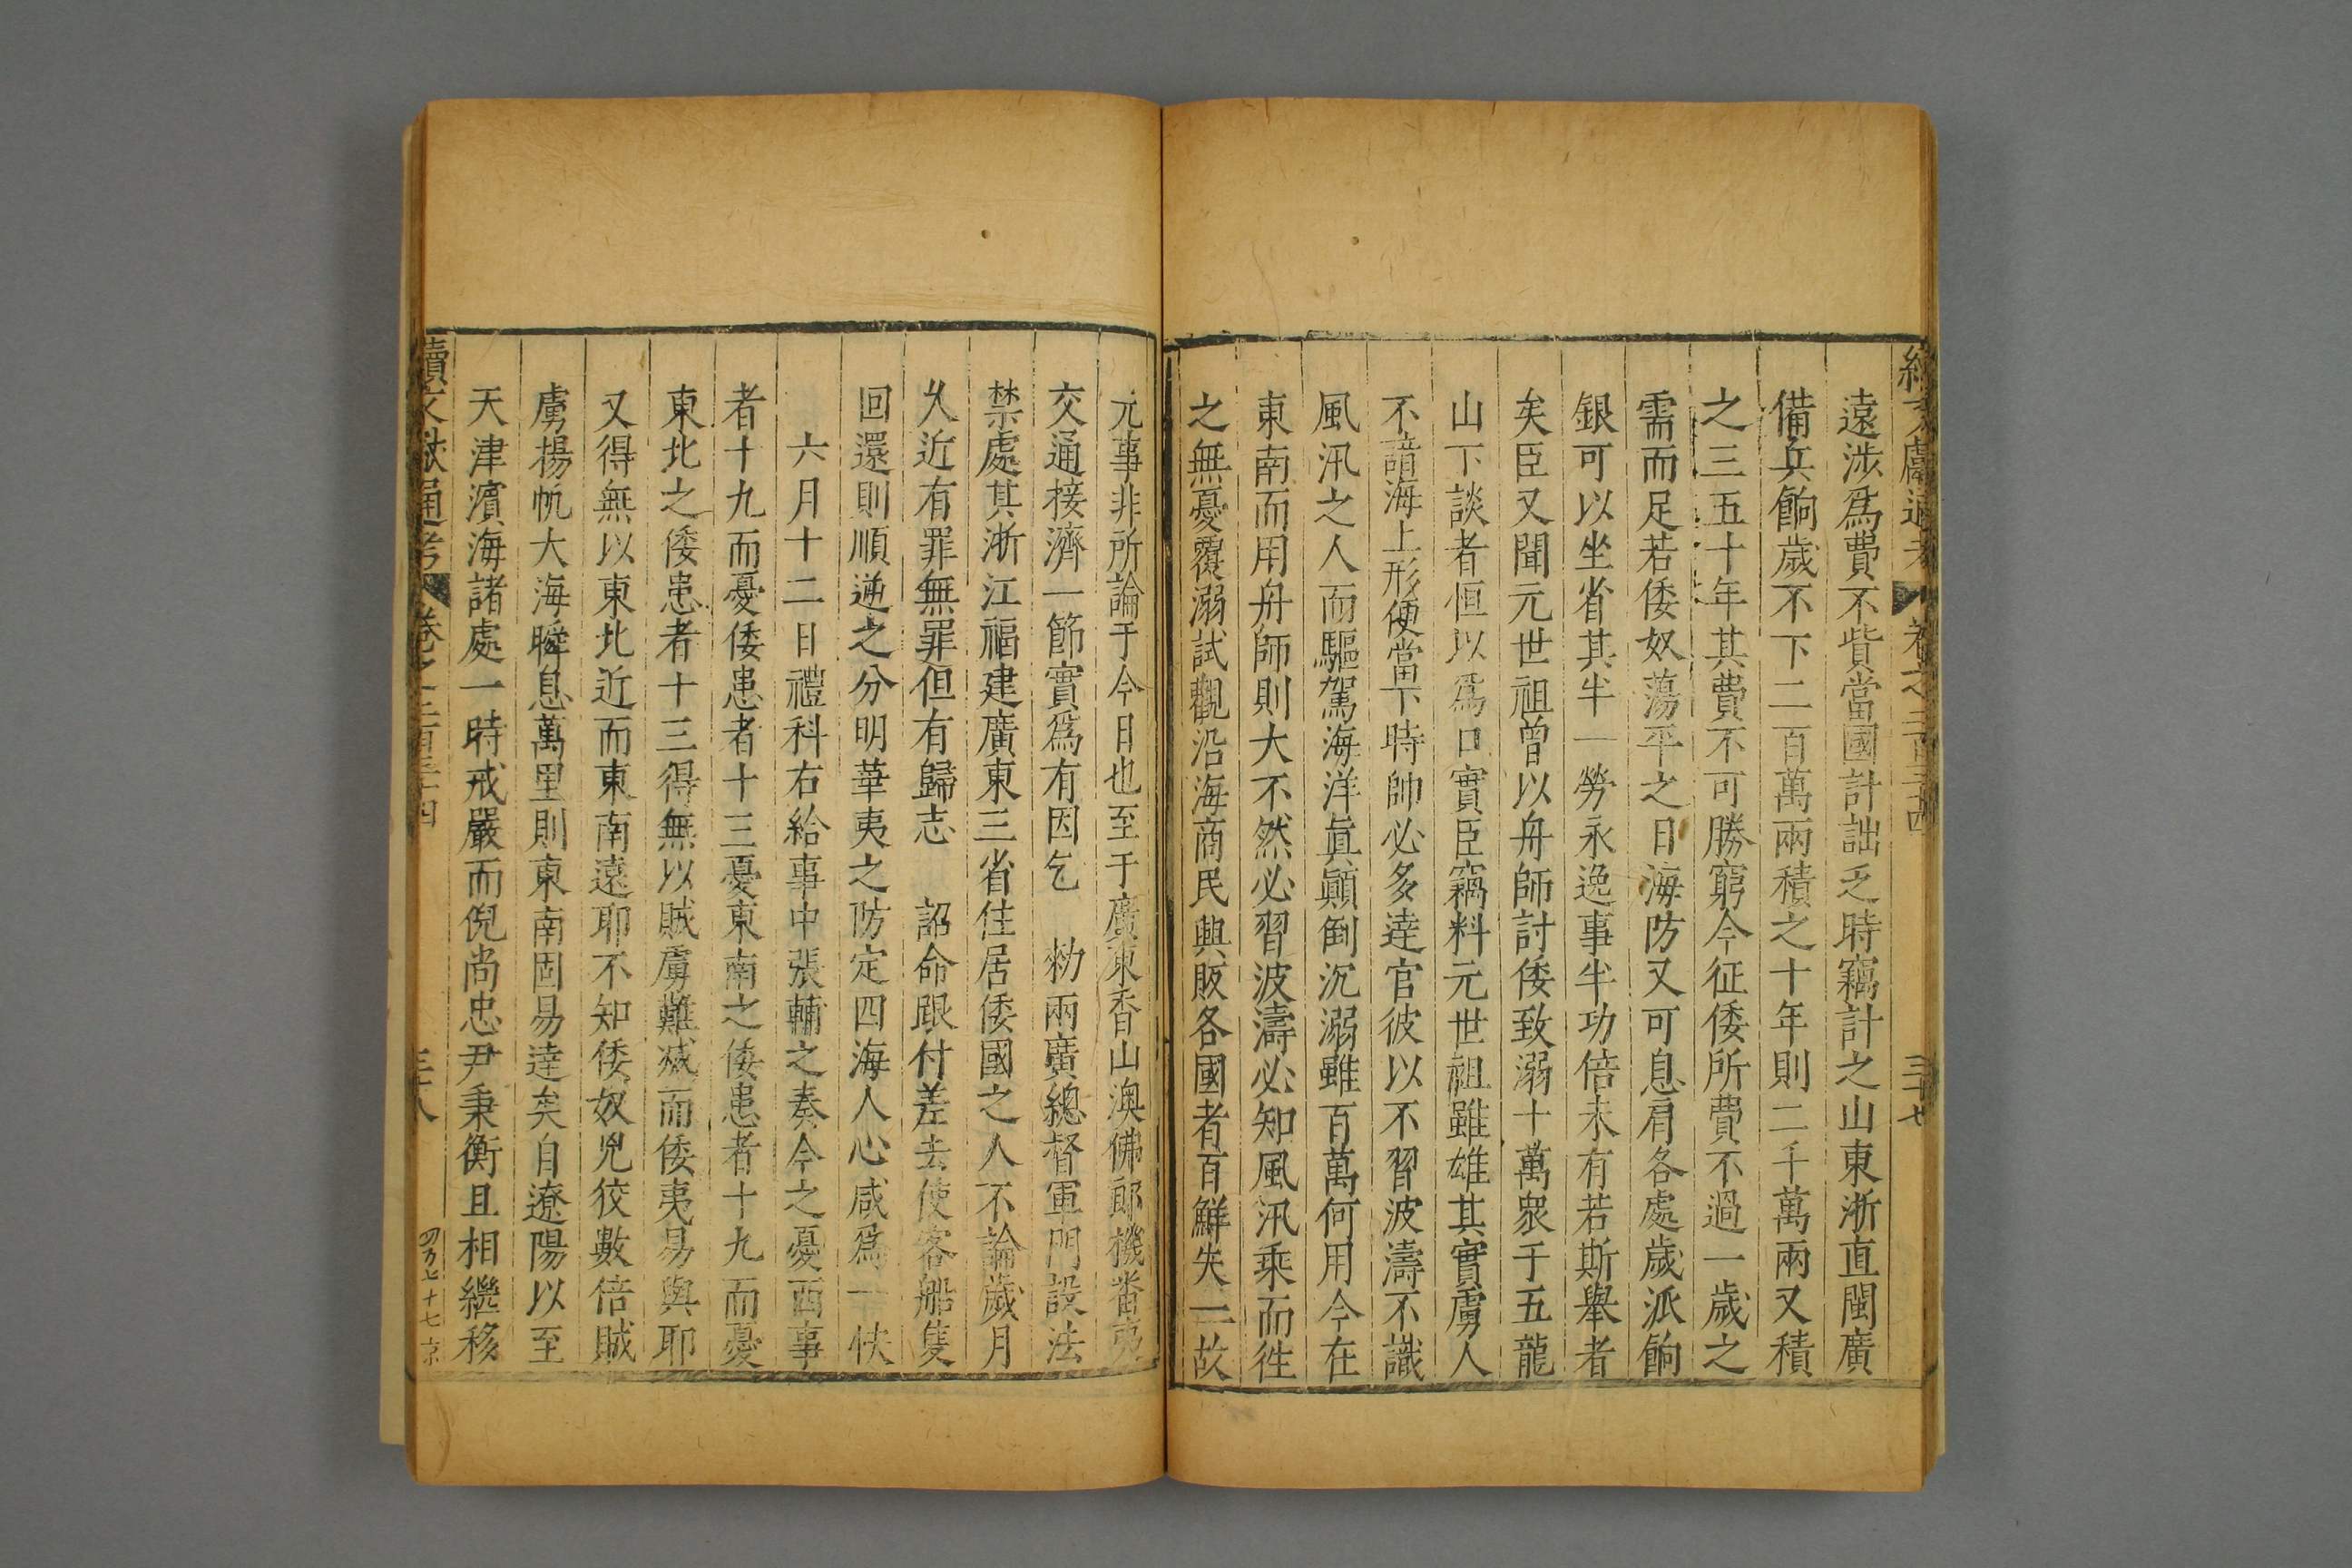 續文獻通考 卷之二百三十四 三十七
遠涉爲費不貲當國計詘乏時竊計之山東浙直閩廣
備兵餉歲不下二百萬兩積之十年則二千萬兩又積
之三五十年其費不可勝窮今征倭所費不過一歲之
需而足若倭奴蕩平之日海防又可息肩各處歲派餉
銀可以坐省其半一勞永逸事半功倍未有若斯舉者
矣臣又聞元世祖曾以舟師討倭致溺十萬衆于五龍
山下談者恒以爲口實臣竊料元世祖雖雄其實虜人
不諳海上形便當下時帥必多達官彼以不習波濤不識
風汛之人而驅駕海洋眞顚倒沉溺雖百萬何用今在
東南而用舟師則大不然必習波濤必知風汛乘而徃
之無憂覆溺試觀沿海商民興販各國者百鮮失一故
元事非所論于今日也至于廣東香山澳佛郎機畨夷
交通接濟一節實爲有因乞 勑兩廣總督軍門設法
禁處其浙江福建廣東三省住居倭國之人不論歲月
久近有罪無罪但有歸志 詔命跟付差去使客船隻
回還則順逆之分明華夷之防定四海人心咸爲一快
六月十二日禮科右給事中張輔之奏今之憂西事
者十九而憂倭患者十三憂東南之倭患者十九而憂
東北之倭患者十三得無以賊虜難滅而倭夷易與耶
又得無以東北近而東南遠耶不知倭奴兇狡數倍賊
虜揚帆大海瞬息萬里則東南固易達矣自遼陽以至
天津濱海諸處一時戒嚴而倪尚忠尹秉衡且相繼移
續文獻通考 卷之二百三十四 三十八